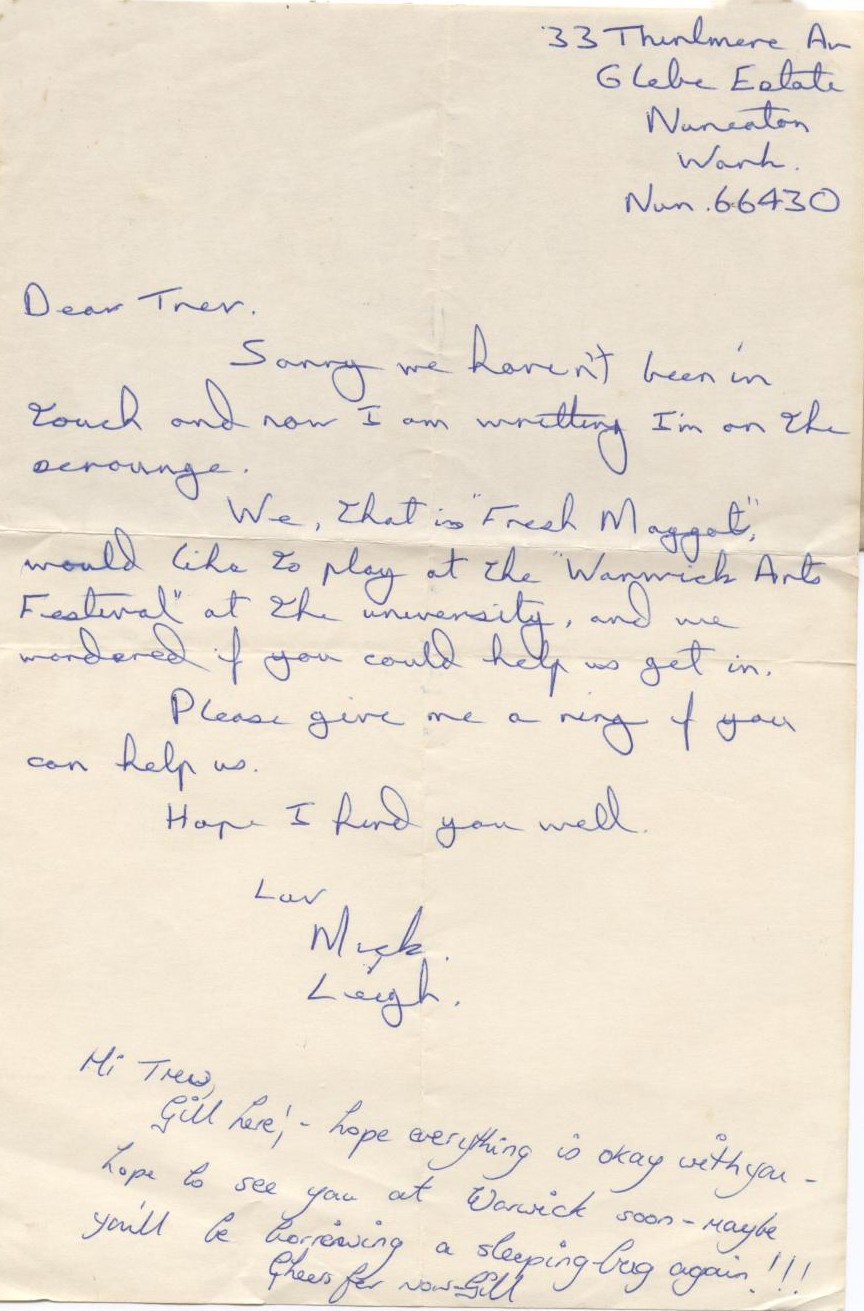 33 Thirlmere Av
Glebe Estate
Nuneaton
Wark.
Nun. 66430
Dear Trev.
Sorry we haven't been in
touch and now I am writting I'm on the
scrounge.
We, that is "Fresh Maggot",
would like to play at the "Warwick Arts
Festival" at the university, and we
wondered if you could help us get in.
Please give me a ring if you
can help us.
Hope I find you well.
Luv
Mick.
Leigh.
Hi Trev,
Gill here! - hope everything is okay with you -
hope to see you at Warwick soon - maybe
you'll be borrowing a sleeping-bag again!!!
Cheers for now - Gill